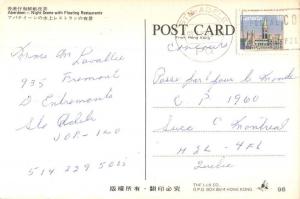 香港仔海鮮舫夜景
Aberdeen — Night Scene with Floating Restaurants
アバディーンの水上レストランの夜景
POST CARD
From Hong Kong
Canada
Concours
935 Fremont
D Entremonts
Ste Adèle
JOR-1L0
514 229 5021
Passe par tout le monde
C P 1960
Succ C Montreal
H2L-4FL
Quebec
版權所有・翻印必究
THE LUB CO.,
G.P.O. BOX 8614 HONG KONG
98